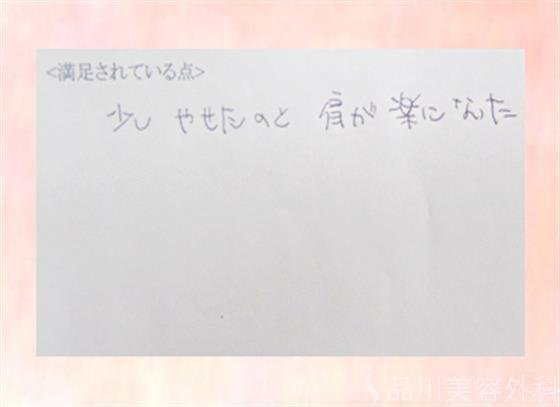 <満足されている点>
少し やせたのと 肩が 楽になった
品川美容外科